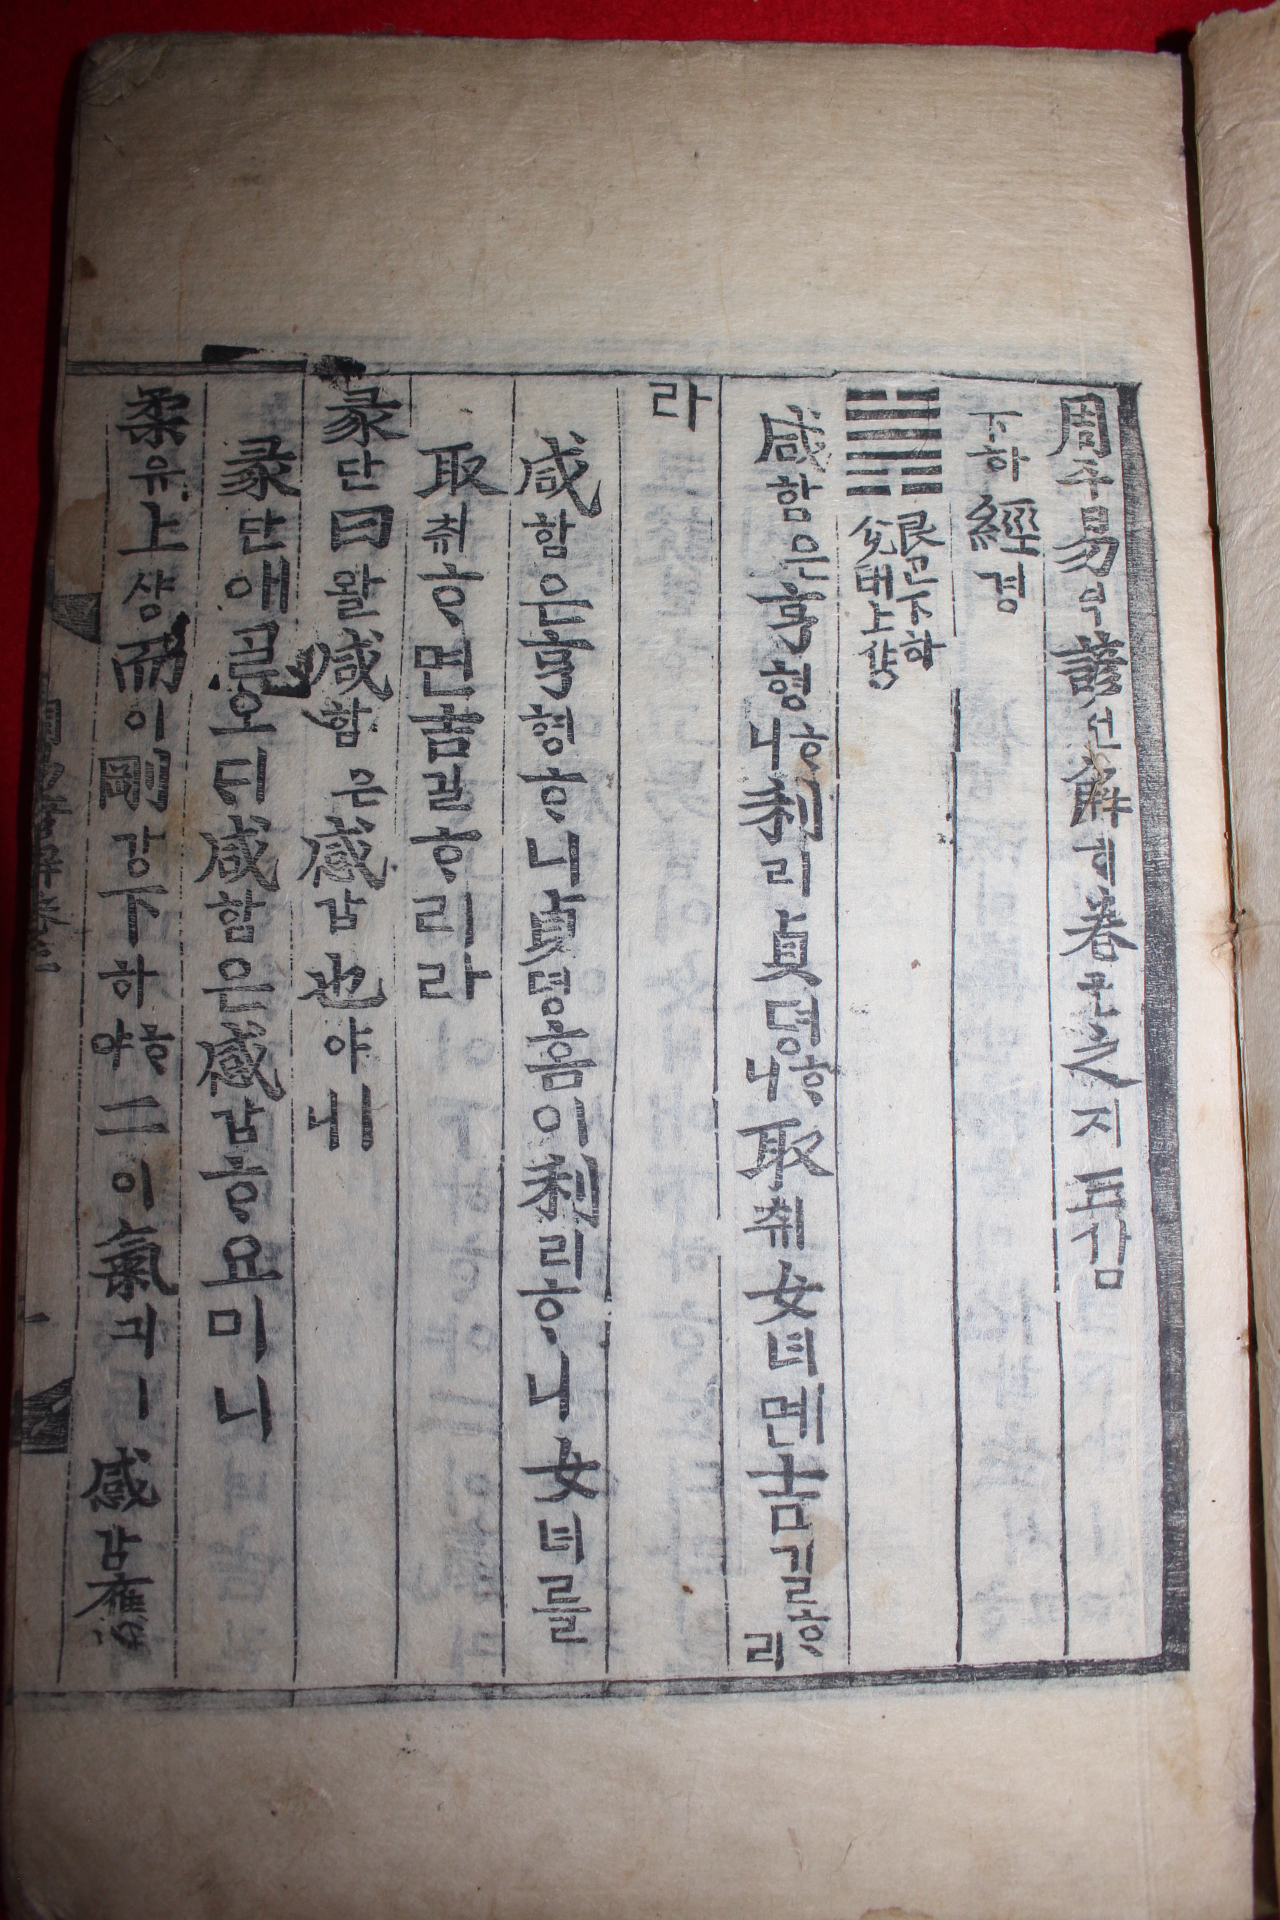 周쥬易역諺언解ᄒᆡ卷권之지三삼
下하經경
䷞ 艮간下하
兌태上샹
咸함은亨형ᄒᆞ니利리貞뎡ᄒᆞ니取ᄎᆔ女녀몐吉길ᄒᆞ리
라
咸함은亨형ᄒᆞ니貞뎡홈이利리ᄒᆞ니女녀를
取ᄎᆔᄒᆞ면吉길ᄒᆞ리라
彖단曰왈咸함은感감也야ㅣ니
彖단애ᄀᆞᆯ오ᄃᆡ咸함은感감ᄒᆞ요미니
柔유上샹而이剛강下하ᄒᆞ야二이氣긔ㅣ感감應응